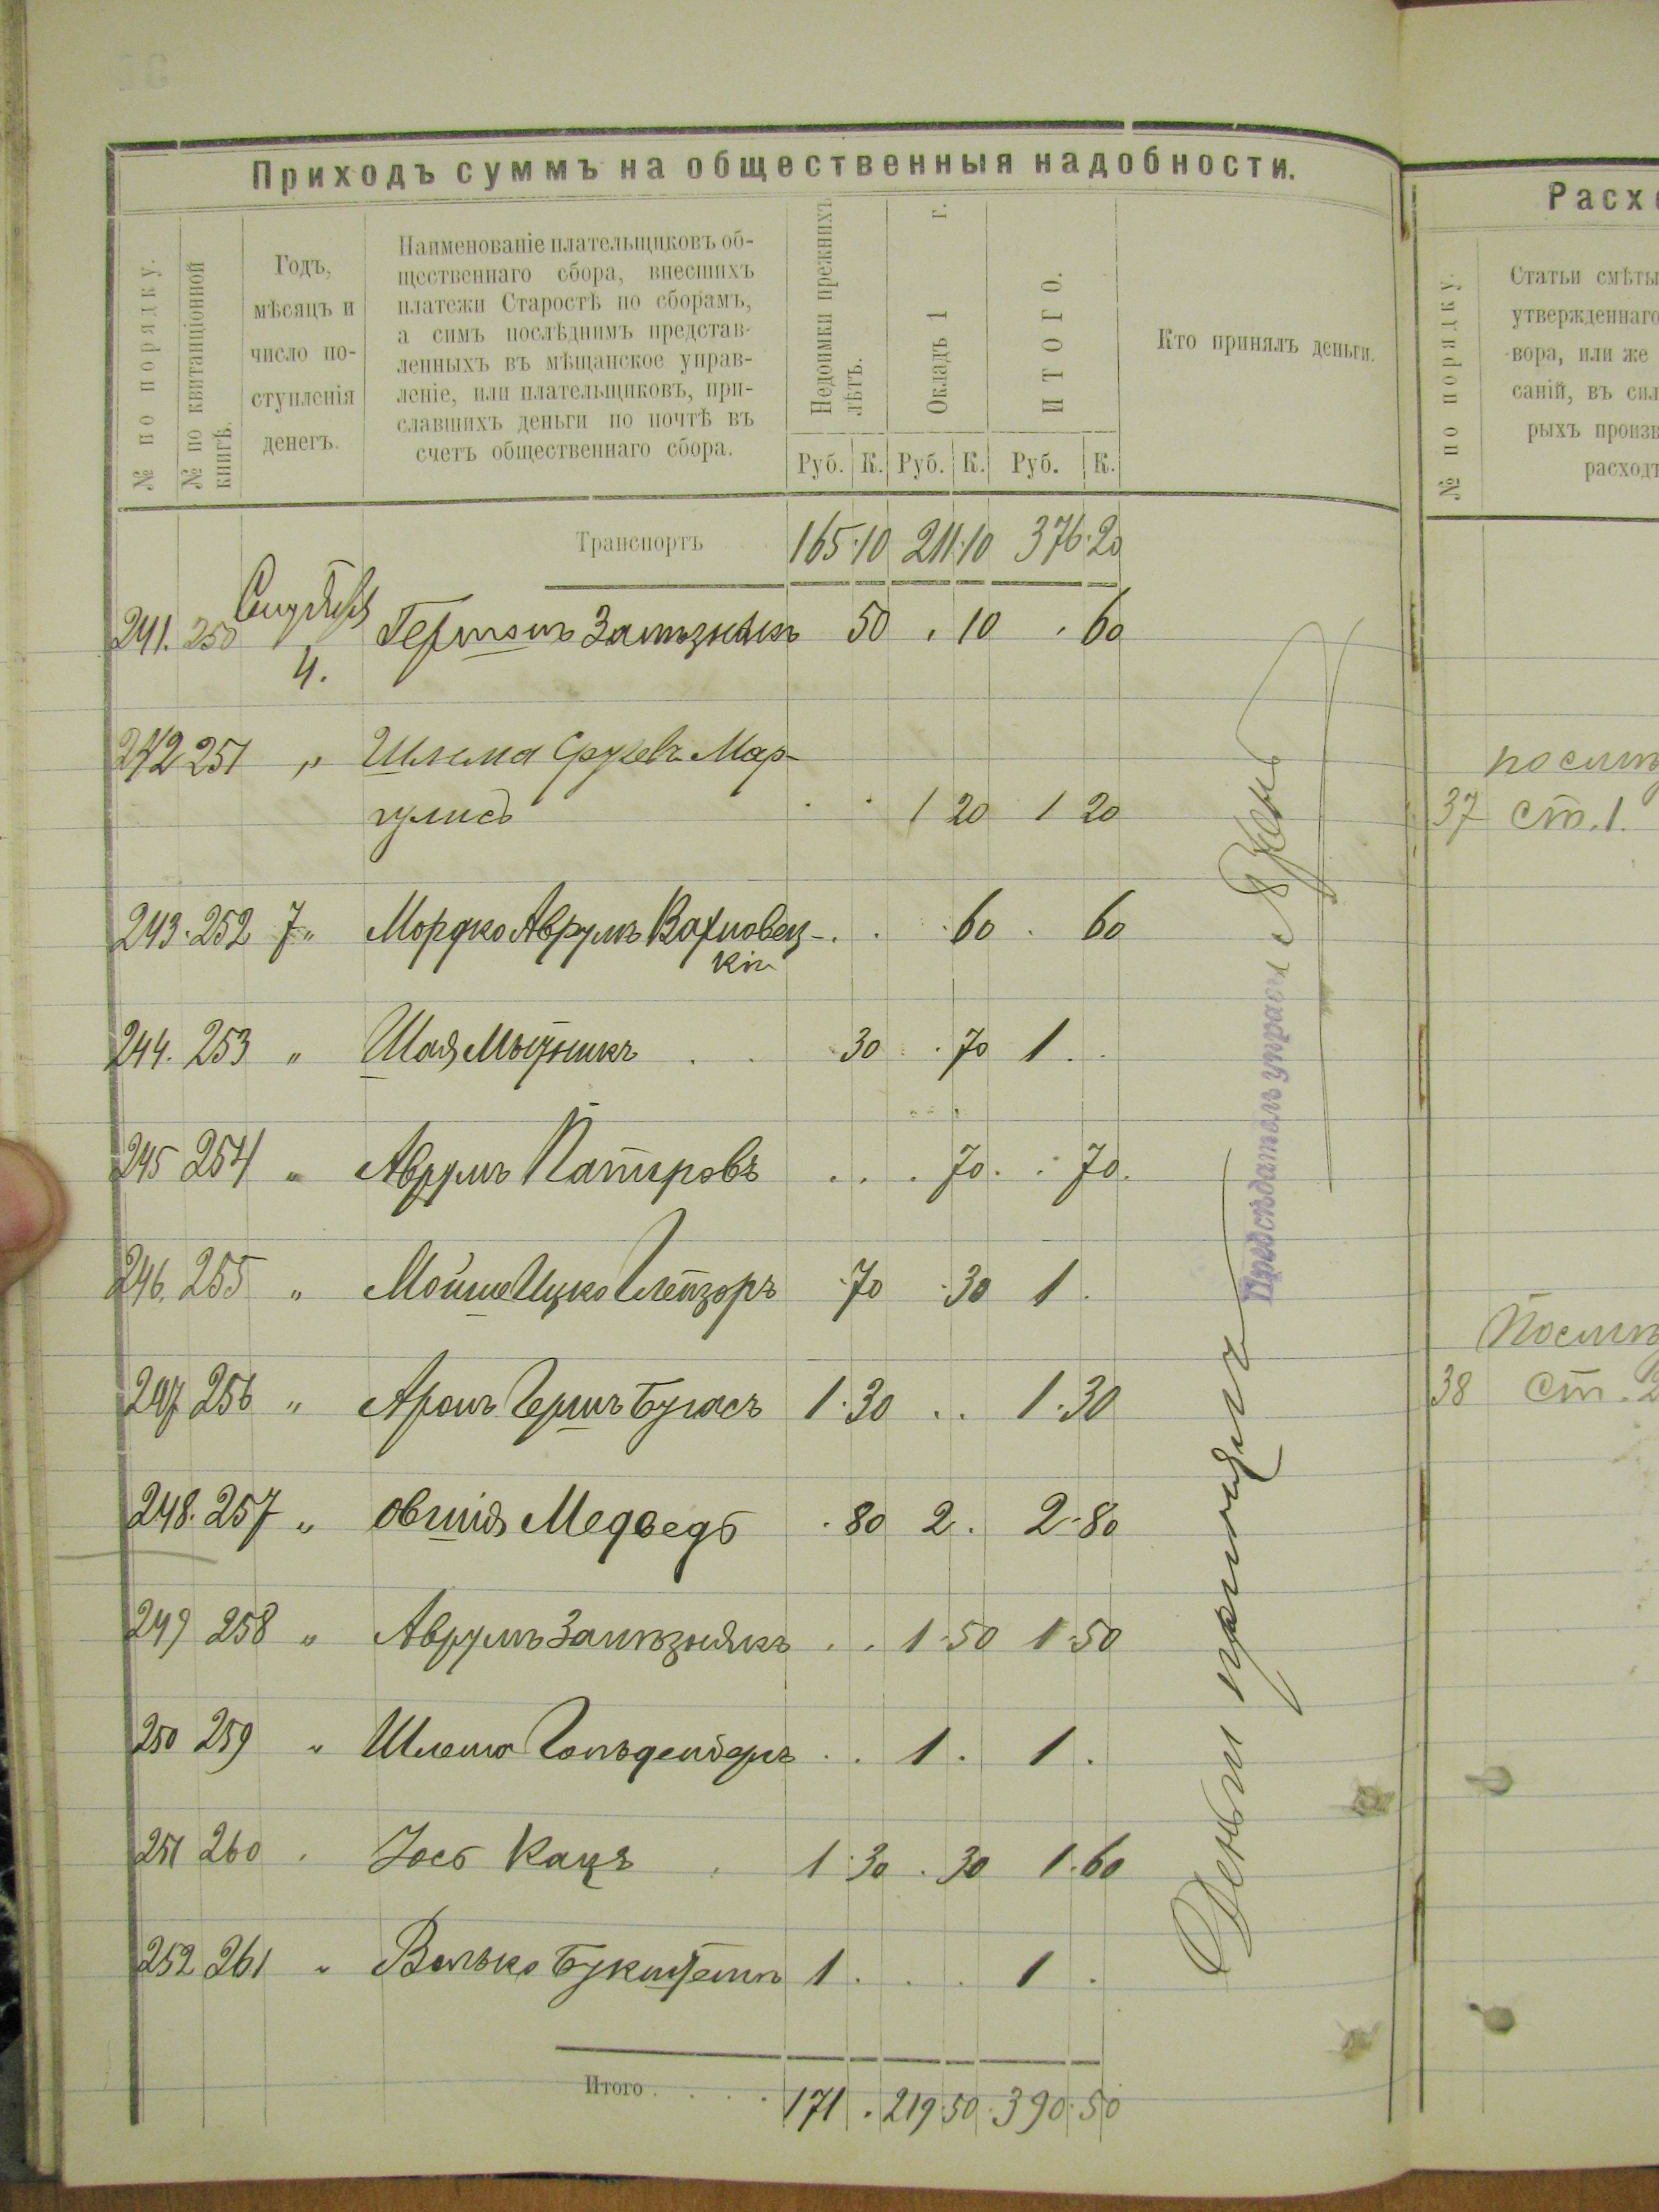 Приходъ суммъ на общественныя надобности.
№ по порядку.
№ по квитанціонной
книгѣ.
Годъ,
мѣсяцъ и
число по-
ступленія
денегъ.
Наименованіе плательщиковъ об-
щественнаго сбора, внесшихъ
платежи Старостѣ по сборамъ,
а симъ послѣднимъ представ-
ленныхъ въ мѣщанское управ-
леніе, или плательщиковъ, при-
славшихъ деньги по почтѣ въ
счетъ общественнаго сбора.
Недоимки прежнихъ
лѣтъ.
Окладъ 1 г.
ИТОГО.
Кто принялъ деньги.
Руб. К. Руб. К. Руб. К.
Транспортъ 165.10 211.10 376.20
Сентября
241. 250 4. Заллѣзнякъ 50 . 10 . 60
242 251 „ Шлема Мар-
гулисъ . . 1 20 1 20
243. 252 7 „ Мордко Аврумъ Вахновец- . . . 60 . 60
кій
244. 253 „ Шая . . 30 . 70 1 . .
245 254 „ Аврумъ . . . 70 . . 70.
246. 255 „ Мойше Ицко . 70 . 30 1 .
247 256 „ Аронъ Гершъ Бугасъ 1.30 . . 1.30
248. 257 „ Овшія Медведь . 80 2 . 2.80
249 258 „ Аврумъ Зализнякъ . . 1.50 1.50
250 259 „ Шлема Гольденберъ . . 1 . 1 .
251 260 . Іось Кацъ . 1.30 . 30 1.60
252 261 „ Волько Букштейнъ 1 . . . 1 .
Итого . . . . 171 . 219.50 . 390.50
Деньги принялъ
Предсѣдатель управы
Расхо
№ по порядку.
Статьи смѣты
утвержденнаго
вора, или же
саній, въ сил
рыхъ произв
расход
37 ст. 1.
38 ст. 2